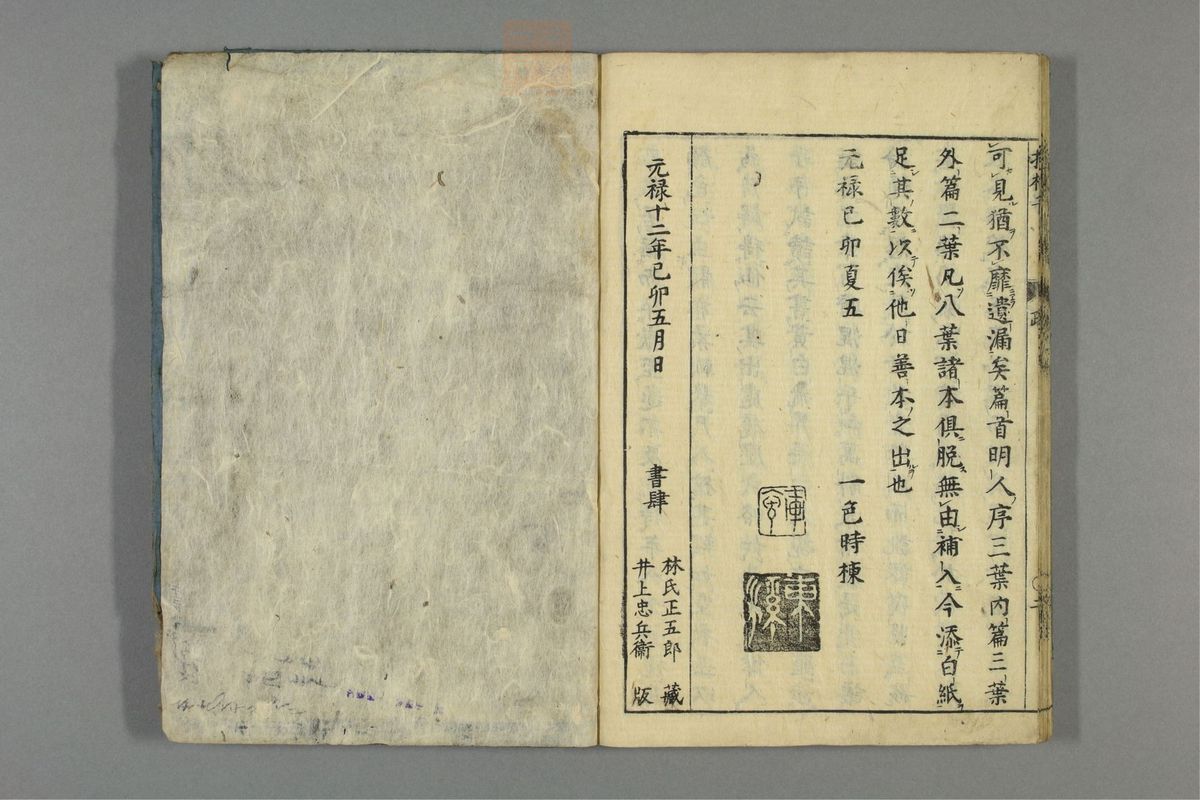 可見猶不靡遺漏矣篇首明人序三葉内篇三葉
外篇二葉凡八葉諸本俱脱無由補入今添白紙
足其數以俟他日善本之出也
元禄己卯夏五 一色時棟
元禄十二年己卯五月日 書肆
林氏正五郎 藏
井上忠兵衛 版